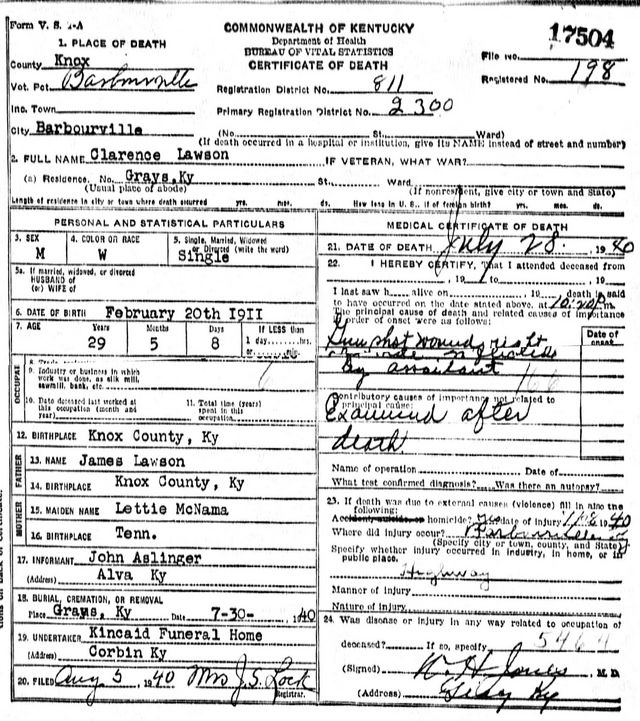 Form V. S. 1-A
COMMONWEALTH OF KENTUCKY
Department of Health
BUREAU OF VITAL STATISTICS
CERTIFICATE OF DEATH
17504
File No.
Registered No. 198
1. PLACE OF DEATH
County Knox
Vot. Pct. Barbourville
Inc. Town
City Barbourville
Registration District No. 811
Primary Registration District No. 2300
(No. St. Ward)
(If death occurred in a hospital or institution, give its NAME instead of street and number)
2. FULL NAME Clarence Lawson IF VETERAN, WHAT WAR?
(a) Residence. No. Grays, Ky St. Ward
(Usual place of abode) (If nonresident, give city or town and State)
Length of residence in city or town where death occurred yrs. mos. ds. How long in U. S., if of foreign birth? yrs. mos. ds.
PERSONAL AND STATISTICAL PARTICULARS
3. SEX M
4. COLOR OR RACE W
5. Single, Married, Widowed or Divorced (write the word) Single
5a. If married, widowed, or divorced
HUSBAND of
(or) WIFE of
6. DATE OF BIRTH February 20th 1911
7. AGE Years Months Days If LESS than
29 5 8 1 day hrs.
or min.
OCCUPAT
8. Trade,
9. Industry or business in which
work was done, as silk mill,
sawmill, bank, etc.
10. Date deceased last worked at
this occupation (month and
year)
11. Total time (years)
spent in this
occupation.
12. BIRTHPLACE Knox County, Ky
FATHER
13. NAME James Lawson
14. BIRTHPLACE Knox County, Ky
MOTHER
15. MAIDEN NAME Lettie McNama
16. BIRTHPLACE Tenn.
17. INFORMANT John Aslinger
(Address) Alva Ky
18. BURIAL, CREMATION, OR REMOVAL
Place Grays, Ky Date 7-30- 1940
19. UNDERTAKER Kincaid Funeral Home
(Address) Corbin Ky
20. FILED Aug 5 1940 Mrs J. S. Lock
Registrar.
MEDICAL CERTIFICATE OF DEATH
21. DATE OF DEATH July 28. 1940
22. I HEREBY CERTIFY, That I attended deceased from
, 19 to , 19
I last saw h alive on , 19 death is said
to have occurred on the date stated above, at 10:20 P.m.
The principal cause of death and related causes of importance
in order of onset were as follows:
Date of
onset
Gun shot wounds right
By assailant 166
Contributory causes of importance not related to
principal cause:
Examined after
death
Name of operation Date of
What test confirmed diagnosis? Was there an autopsy?
23. If death was due to external causes (violence) fill in also the
following:
Accident, suicide, or homicide? date of injury 1940
Where did injury occur? Barbourville
(Specify city or town, county, and State)
Specify whether injury occurred in industry, in home, or in
public place.
Highway
Manner of injury
Nature of injury
24. Was disease or injury in any way related to occupation of
deceased? If so, specify 5464
(Signed) W. H. Jones M. D.
(Address) Ky